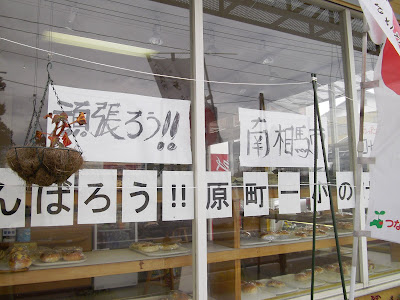 頑張ろう!!
南相馬
んばろう!!原町一小の
つな